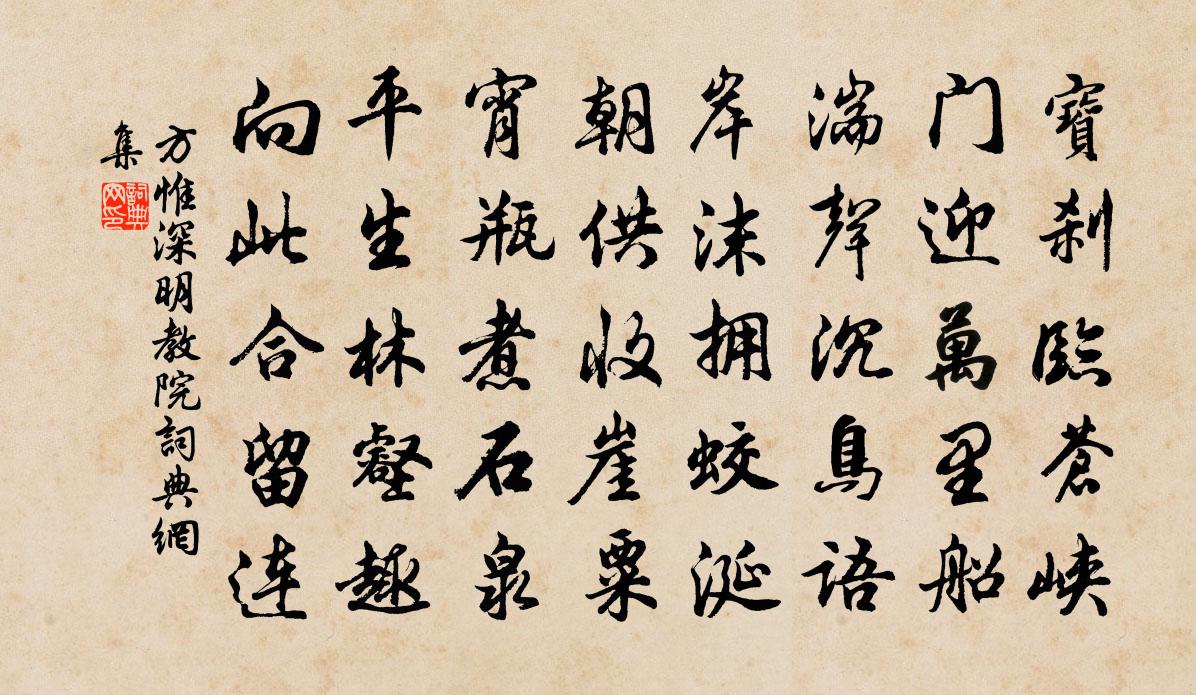 寶刹臨蒼峽
门迎萬里船
湍聲沉鳥語
岸沫拥蛟涎
朝供收崖粟
宵瓶煮石泉
平生林壑趣
向此合留連
方惟深明教院詞典網
集
詞典网印